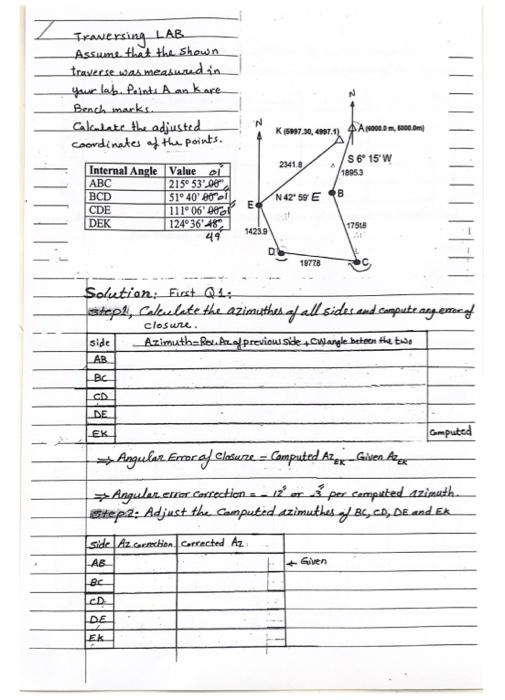 Traversing LAB
Assume that the shown
traverse was measured in
your lab. Points A an K are
Bench marks.
Calculate the adjusted
coordinates of the points.
Internal Angle Value
ABC 215° 53' 00" 01
BCD 51° 40' 00" 01
CDE 111° 06' 00" 01
DEK 124° 36' 48" 49
N
N
K (5997.30, 4997.1)
A (6000.0 m, 5000.0m)
2341.8
S 6° 15' W
1895.3
N 42° 59' E
B
E
1423.9
1751.8
D
1977.8
C
Solution: First Q1:
step1, Calculate the azimuthes of all sides and compute any error of
closure.
side Azimuth = Rev. Az. of previous side + CW angle beteen the two
AB
BC
CD
DE
EK Computed
⇒ Angular Error of Closure = Computed Az EK - Given Az EK
⇒ Angular error correction = - 12" or -3" per computed azimuth.
Step2: Adjust the Computed azimuthes of BC, CD, DE and EK
Side Az correction Corrected Az
AB ← Given
BC
CD
DE
EK